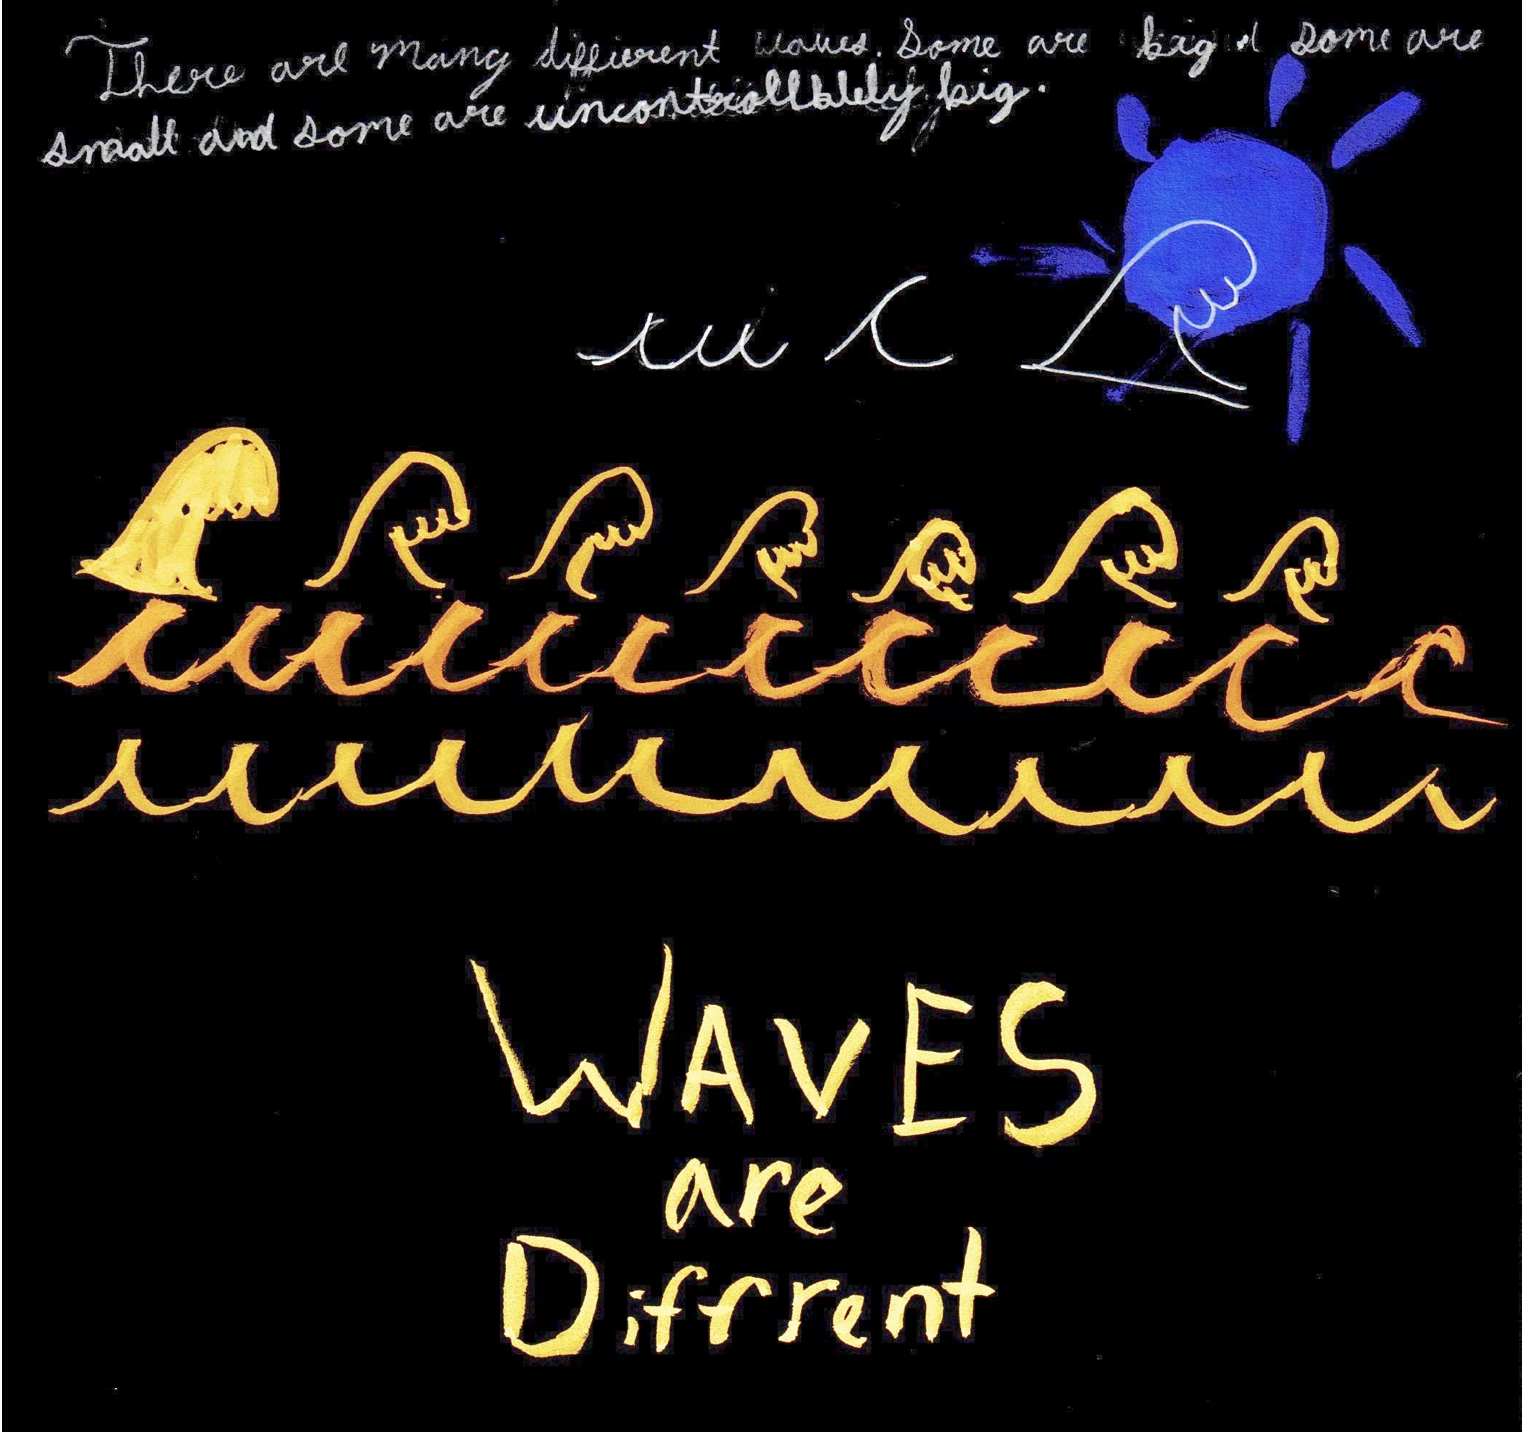 There are many different waves. Some are big some are
small and some are uncontrollblely big.
WAVES
are
Diffrent